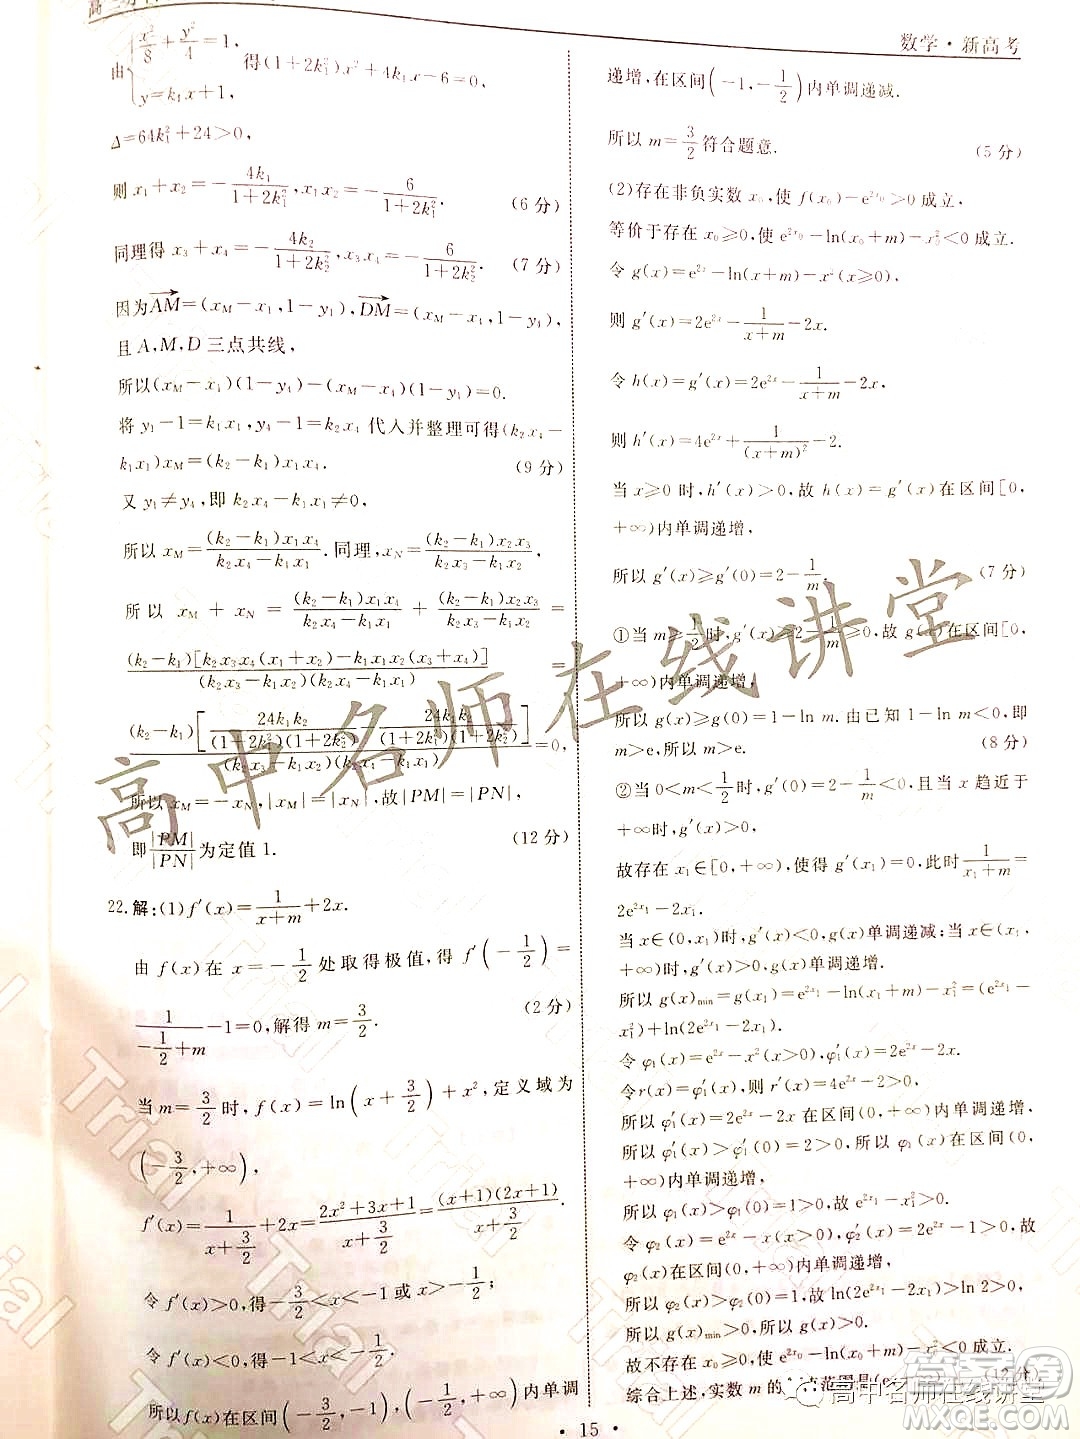 数学·新高考
由{x²/8+y²/4=1, y=k₁x+1, 得(1+2k₁²)x²+4k₁x-6=0,
Δ=64k₁²+24>0,
则 x₁+x₂=-4k₁/(1+2k₁²), x₁x₂=-6/(1+2k₁²). (6 分)
同理得 x₃+x₄=-4k₂/(1+2k₂²), x₃x₄=-6/(1+2k₂²). (7 分)
因为AM→=(x_M-x₁,1-y₁),DM→=(x_M-x₄,1-y₄),
且 A,M,D 三点共线,
所以(x_M-x₁)(1-y₄)-(x_M-x₄)(1-y₁)=0.
将 y₁-1=k₁x₁,y₄-1=k₂x₄ 代入并整理可得(k₂x₄-
k₁x₁)x_M=(k₂-k₁)x₁x₄. (9 分)
又 y₁≠y₄,即 k₂x₄-k₁x₁≠0,
所以 x_M=(k₂-k₁)x₁x₄/(k₂x₄-k₁x₁).同理,x_N=(k₂-k₁)x₂x₃/(k₂x₃-k₁x₂),
所以 x_M+x_N=(k₂-k₁)x₁x₄/(k₂x₄-k₁x₁)+(k₂-k₁)x₂x₃/(k₂x₃-k₁x₂)=
(k₂-k₁)[k₂x₃x₄(x₁+x₂)-k₁x₁x₂(x₃+x₄)]/(k₂x₃-k₁x₂)(k₂x₄-k₁x₁)=
(k₂-k₁)[24k₁k₂/(1+2k₁²)(1+2k₂²)-24k₁k₂/(1+2k₁²)(1+2k₂²)]/(k₂x₃-k₁x₂)(k₂x₄-k₁x₁)=0,
所以 x_M=-x_N,|x_M|=|x_N|,故|PM|=|PN|,
即|PM|/|PN|为定值 1. (12 分)
22.解:(1)f′(x)=1/(x+m)+2x.
由 f(x)在 x=-1/2 处取得极值,得 f′(-1/2)=
1/(-1/2+m)-1=0,解得 m=3/2. (2 分)
当 m=3/2 时,f(x)=ln(x+3/2)+x²,定义域为
(-3/2,+∞),
f′(x)=1/(x+3/2)+2x=(2x²+3x+1)/(x+3/2)=(x+1)(2x+1)/(x+3/2).
令 f′(x)>0,得-3/2<x<-1 或 x>-1/2;
令 f′(x)<0,得-1<x<-1/2.
所以 f(x)在区间(-3/2,-1),(-1/2,+∞)内单调
递增,在区间(-1,-1/2)内单调递减.
所以 m=3/2 符合题意. (5 分)
(2)存在非负实数 x₀,使 f(x₀)-e^(2x₀)>0 成立,
等价于存在 x₀≥0,使 e^(2x₀)-ln(x₀+m)-x₀²<0 成立.
令 g(x)=e^(2x)-ln(x+m)-x²(x≥0),
则 g′(x)=2e^(2x)-1/(x+m)-2x.
令 h(x)=g′(x)=2e^(2x)-1/(x+m)-2x,
则 h′(x)=4e^(2x)+1/(x+m)²-2.
当 x≥0 时,h′(x)>0,故 h(x)=g′(x)在区间[0,
+∞)内单调递增,
所以 g′(x)≥g′(0)=2-1/m. (7 分)
①当 m≥1/2时,g′(x)≥2-1/m≥0,故 g(x)在区间[0,
+∞)内单调递增,
所以 g(x)≥g(0)=1-ln m.由已知 1-ln m<0,即
m>e. (8 分)
②当 0<m<1/2时,g′(0)=2-1/m<0,且当 x 趋近于
+∞时,g′(x)>0,
故存在 x₁∈[0,+∞),使得 g′(x₁)=0,此时1/(x₁+m)=
2e^(2x₁)-2x₁.
当 x∈(0,x₁)时,g′(x)<0,g(x)单调递减;当 x∈
(x₁,+∞)时,g′(x)>0,g(x)单调递增.
所以 g(x)min=g(x₁)=e^(2x₁)-ln(x₁+m)-x₁²=(e^(2x₁)-
x₁²)+ln(2e^(2x₁)-2x₁).
令 φ₁(x)=e^(2x)-x²(x>0),φ₁′(x)=2e^(2x)-2x.
令r(x)=φ₁′(x),则 r′(x)=4e^(2x)-2>0,
所以 φ₁′(x)=2e^(2x)-2x 在区间(0,+∞)内单调递增,
所以 φ₁′(x)>φ₁′(0)=2>0,所以 φ₁(x)在区间(0,
+∞)内单调递增,
所以 φ₁(x)>φ₁(0)=1>0,故 e^(2x₁)-x₁²>0.
令 φ₂(x)=e^(2x)-x(x>0),φ₂′(x)=2e^(2x)-1>0,故
φ₂(x)在区间(0,+∞)内单调递增,
所以 φ₂(x)>φ₂(0)=1,故 ln(2e^(2x₁)-2x₁)>ln 2>0,
所以 g(x)min>0,所以 g(x)>0.
故不存在 x₀≥0,使 e^(2x₀)-ln(x₀+m)-x₀²<0 成立.
综合上述,实数 m 的
范围是(e
12 分
• 15 •
高中名师在线讲堂
高中名师在线讲堂
答案圈
MXQE.COM
Trial
Trial
Trial
Trial